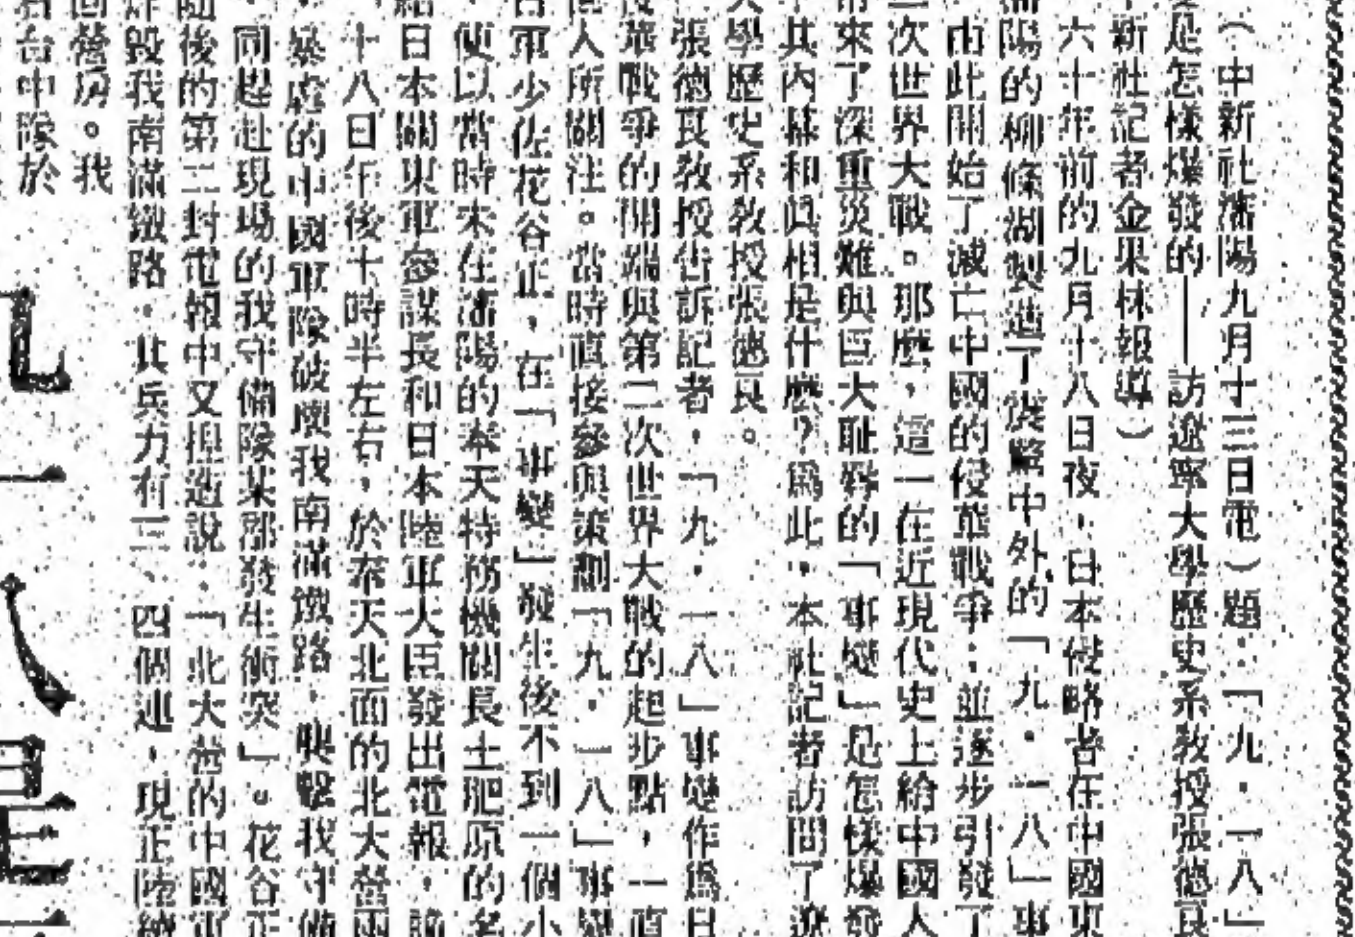 （中新社瀋陽九月十三日電）題：「九・一八」
是怎樣爆發的——訪遼寧大學歷史系教授張德良
新社記者金果林報導）
六十年前的九月十八日夜，日本侵略者在中國東
瀋陽的柳條湖製造了震驚中外的「九・一八」事
由此開始了滅亡中國的侵華戰爭；並逐步引發了
次世界大戰。那麼，這一在近現代史上給中國人
帶來了深重災難與巨大恥辱的「事變」是怎樣爆發
其內幕和眞相是什麼？爲此，本社記者訪問了遼
大學歷史系教授張德良。
張德良教授告訴記者，「九・一八」事變作爲日
侵華戰爭的開端與第二次世界大戰的起步點，一直
人所關注。當時直接參與策劃「九・一八」事變
日軍少佐花谷正，在「事變」發生後不到一個小
便以當時未在瀋陽的奉天特務機關長土肥原的名
給日本關東軍參謀長和日本陸軍大臣發出電報，
十八日午後十時半左右，於奉天北面的北大營
暴虐的中國軍隊破壞我南滿鐵路，襲擊我守備
同趕赴現場的我守備隊某部發生衝突」。花谷正
隨後的第二封電報中又捏造說：「北大營的中國軍
炸毀我南滿鐵路，其兵力有三、四個連，現正陸續
回營房。我
台中隊於
九一八是